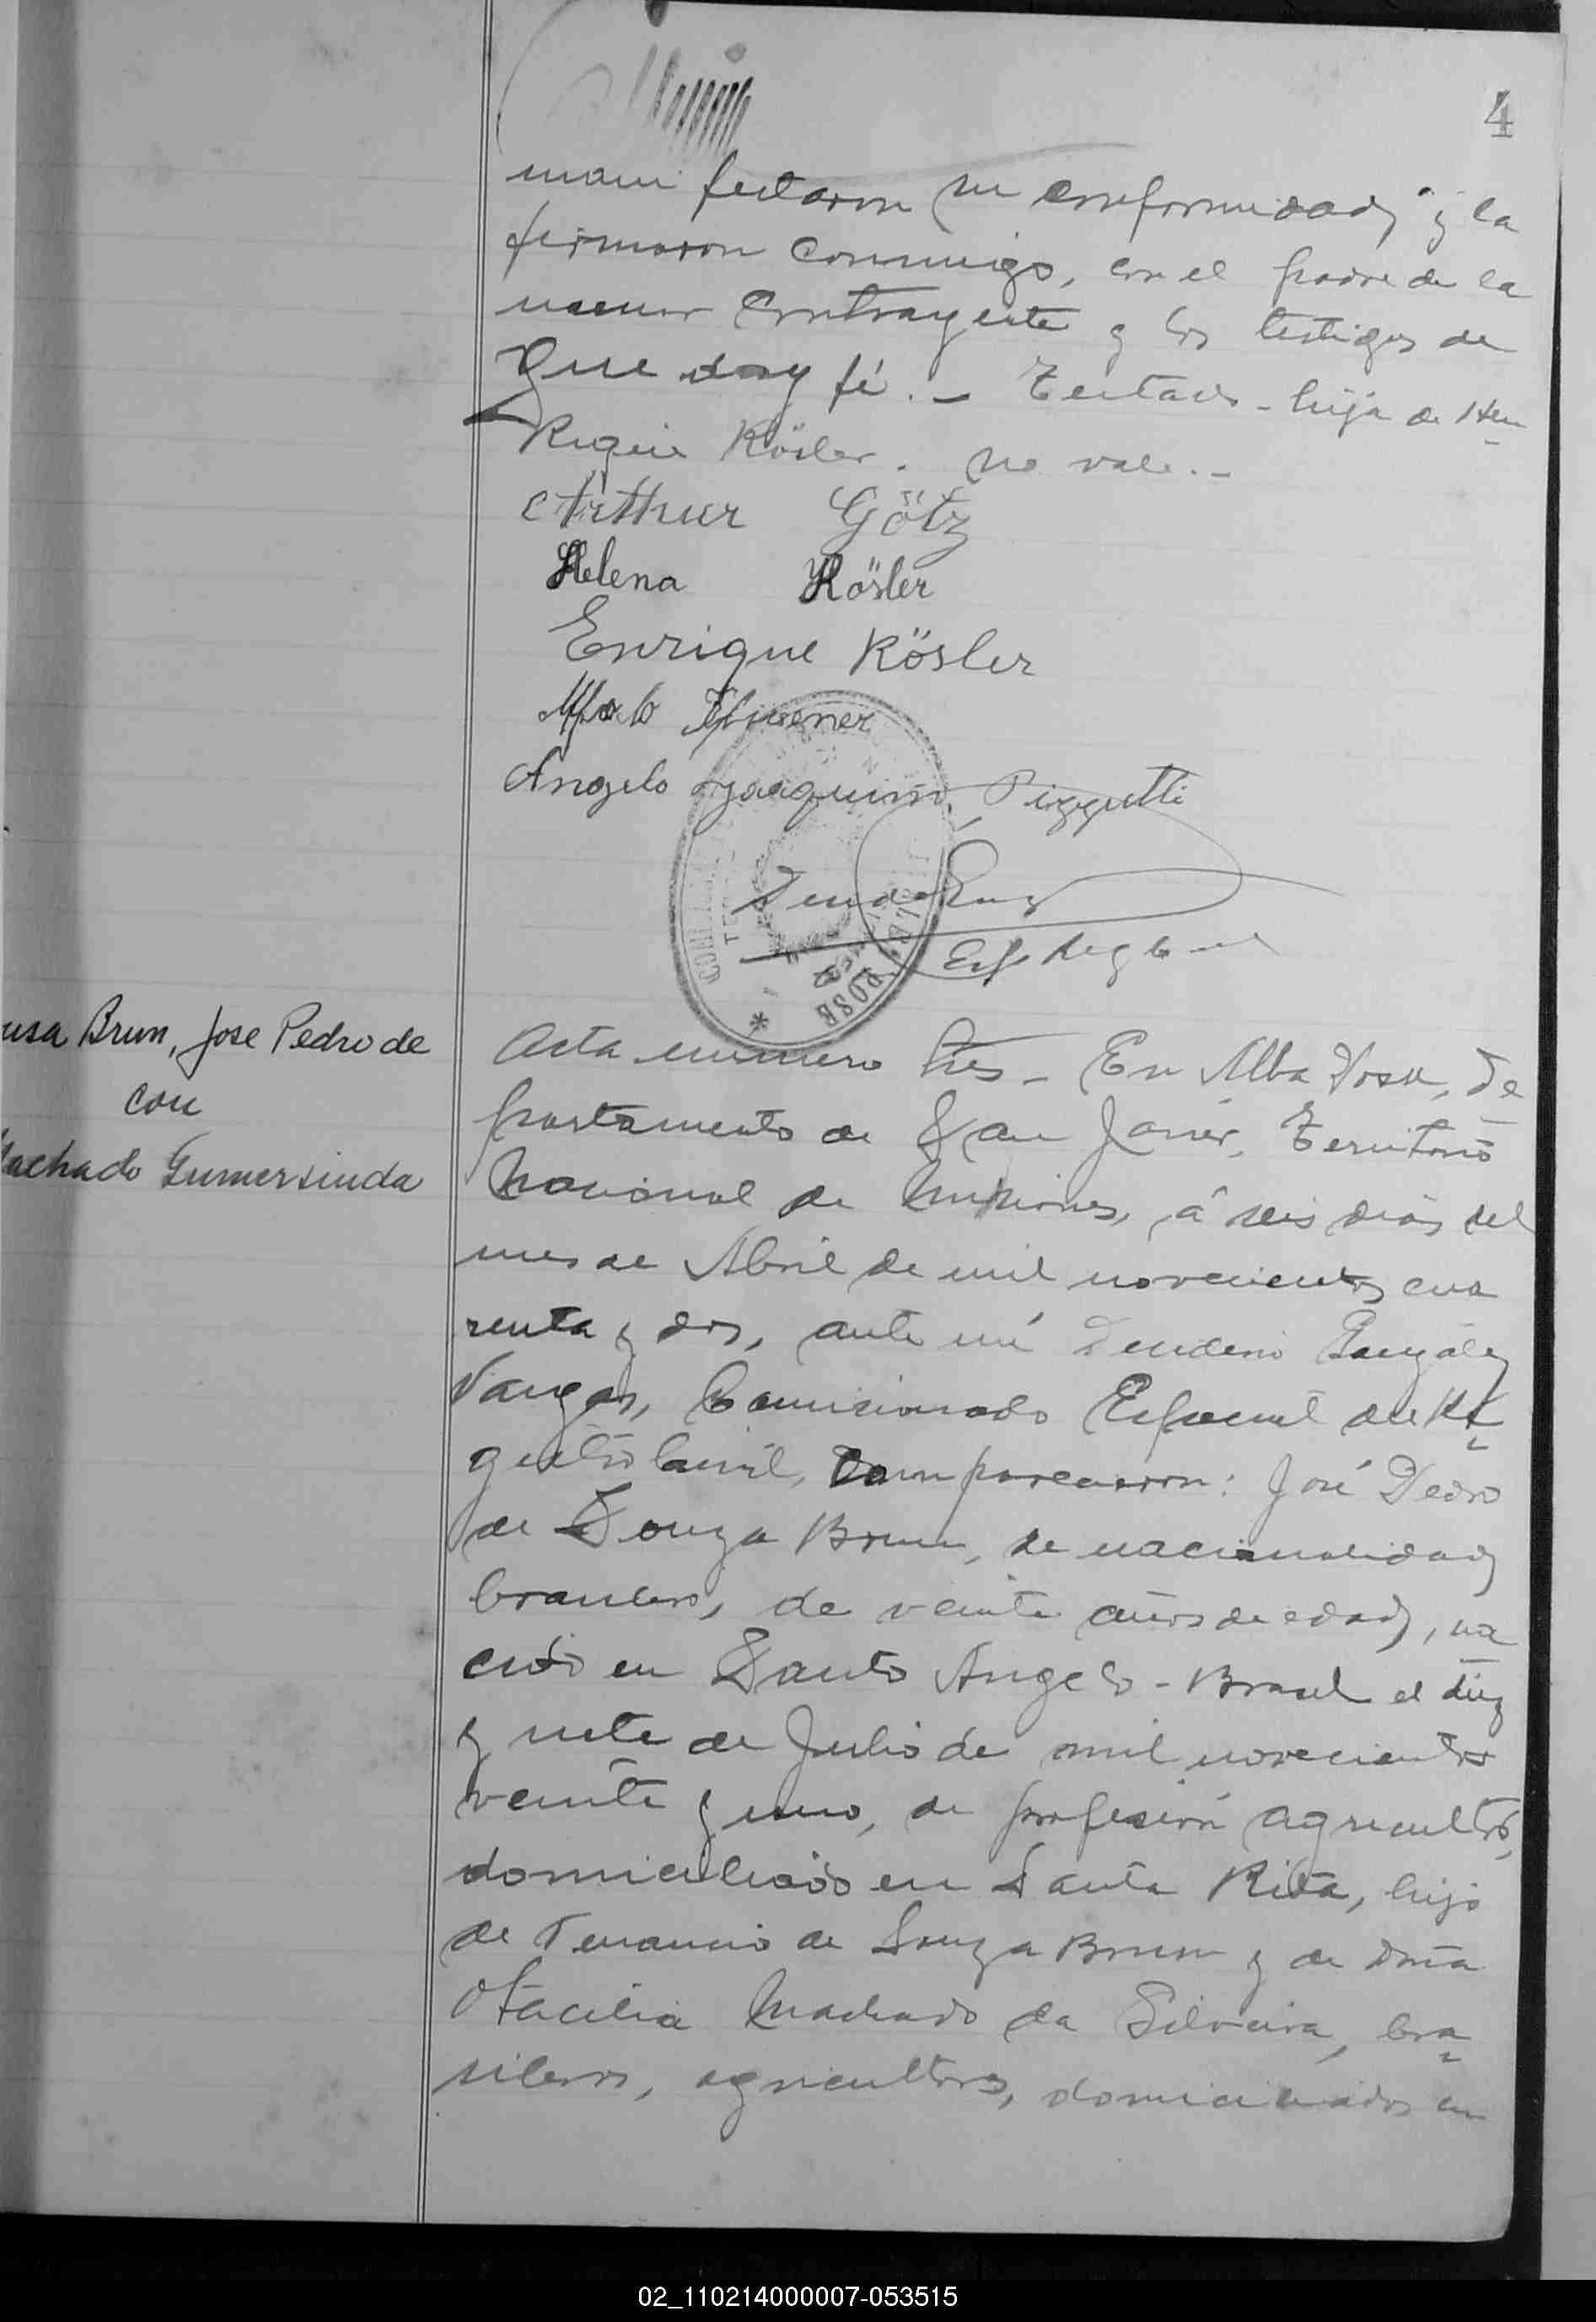 4
manifestaron su conformidad, y la
firmaron conmigo, con el padre de la
menor contrayente y los testigos de
que doy fé. - Testado - hija de Hen
rique Kösler. no vale. -
Arthur Götz
Helena Kösler
Enrique Kösler
Angelo Joaquim Pizzutti
Esp Reg C
ALBA POSSE
usa Brun, Jose Pedro de
con
Machado Gumersinda
Acta número tres - En Alba Posse, De
partamento de San Javier, Territorio
Nacional de Misiones, á seis dias del
mes de Abril de mil novecientos cua
renta y dos, ante mí González
Vargas, Comisionado Especial del Re
gistro Civil, comparecieron: José Pedro
de Souza Brum, de nacionalidad
brasilero, de veinte años de edad, na
cido en Santo Angelo - Brasil el diez
y siete de Julio de mil novecientos
veinte y uno, de profesión agricultor,
domiciliado en Santa Rita, hijo
de Venancio de Souza Brum y de Doña
Otacilia Machado da Silveira, bra
sileros, agricultores, domiciliados en
02_110214000007-053515